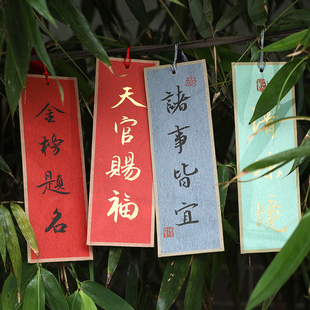 金榜題名
天官賜福
諸事皆宜